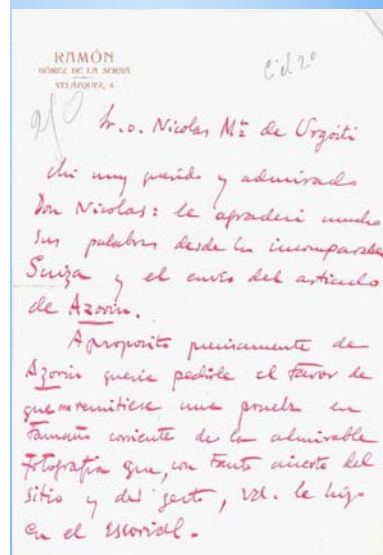 RAMÓN
GÓMEZ DE LA SERNA
VELÁZQUEZ, 4
Sr. D. Nicolas Mª de Urgoiti
Mi muy querido y admirado
Don Nicolas: le agradecí mucho
sus palabras desde la incomparable
Suiza y el envío del articulo
de Azorín.
A proposito precisamente de
Azorin queria pedirle el favor de
que me remitiese una prueba en
Tamaño corriente de la admirable
Fotografía que, con tanto acierto del
sitio y del gesto, Vd. le hizo
en el Escorial.